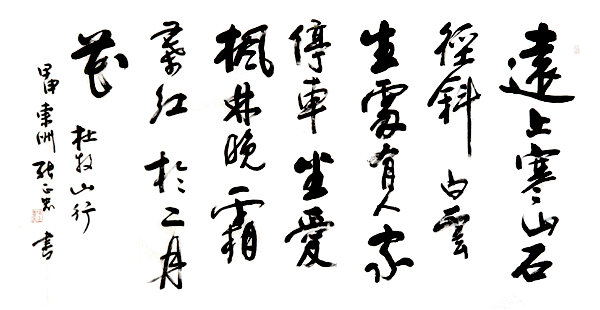 遠上寒山石
徑斜白雲
生處有人家
停車坐愛
楓林晚霜
葉紅於二月
花
杜牧山行
甲申東洲張正書